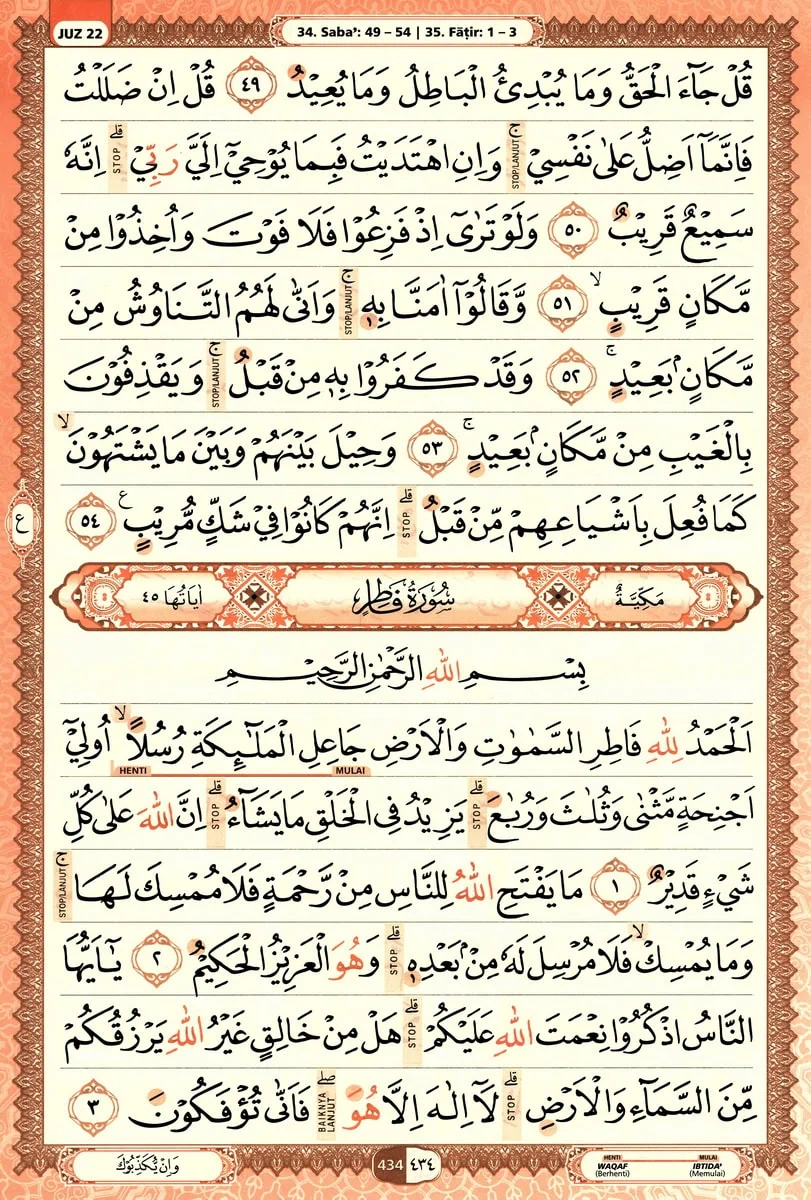 JUZ 22
34. Saba’: 49 – 54 | 35. Fāṭir: 1 – 3
قُلْ جَاۤءَ الْحَقُّ وَمَا يُبْدِئُ الْبَاطِلُ وَمَا يُعِيْدُ ٤٩ قُلْ اِنْ ضَلَلْتُ
فَاِنَّمَآ اَضِلُّ عَلٰى نَفْسِيْ ۚ STOP/LANJUT وَاِنِ اهْتَدَيْتُ فَبِمَا يُوْحِيْٓ اِلَيَّ رَبِّيْ ۗ STOP اِنَّهٗ
سَمِيْعٌ قَرِيْبٌ ٥٠ وَلَوْ تَرٰىٓ اِذْ فَزِعُوْا فَلَا فَوْتَ وَاُخِذُوْا مِنْ
مَّكَانٍ قَرِيْبٍ ۙ ٥١ وَّقَالُوْٓا اٰمَنَّا بِهٖ ۚ STOP/LANJUT وَاَنّٰى لَهُمُ التَّنَاوُشُ مِنْ
مَّكَانٍۢ بَعِيْدٍ ۚ ٥٢ وَقَدْ كَفَرُوْا بِهٖ مِنْ قَبْلُ ۚ STOP/LANJUT وَيَقْذِفُوْنَ
بِالْغَيْبِ مِنْ مَّكَانٍۢ بَعِيْدٍ ۚ ٥٣ وَحِيْلَ بَيْنَهُمْ وَبَيْنَ مَا يَشْتَهُوْنَ ۙ
كَمَا فُعِلَ بِاَشْيَاعِهِمْ مِّنْ قَبْلُ ۗ STOP اِنَّهُمْ كَانُوْا فِيْ شَكٍّ مُّرِيْبٍ ع ٥٤
ع
مَكِّيَّةٌ سُوْرَةُ فَاطِرٍ اٰيَاتُهَا ٤٥
بِسْمِ اللّٰهِ الرَّحْمٰنِ الرَّحِيْمِ
اَلْحَمْدُ لِلّٰهِ فَاطِرِ السَّمٰوٰتِ وَالْاَرْضِ جَاعِلِ الْمَلٰۤىِٕكَةِ رُسُلًاۙ اُولِيْٓ
MULAI HENTI
اَجْنِحَةٍ مَّثْنٰى وَثُلٰثَ وَرُبٰعَ ۗ STOP يَزِيْدُ فِى الْخَلْقِ مَا يَشَاۤءُ ۗ STOP اِنَّ اللّٰهَ عَلٰى كُلِّ
شَيْءٍ قَدِيْرٌ ١ مَا يَفْتَحِ اللّٰهُ لِلنَّاسِ مِنْ رَّحْمَةٍ فَلَا مُمْسِكَ لَهَا ۚ STOP/LANJUT
وَمَا يُمْسِكْۙ فَلَا مُرْسِلَ لَهٗ مِنْۢ بَعْدِهٖ ۗ STOP وَهُوَ الْعَزِيْزُ الْحَكِيْمُ ٢ يٰٓاَيُّهَا
النَّاسُ اذْكُرُوْا نِعْمَتَ اللّٰهِ عَلَيْكُمْ ۗ STOP هَلْ مِنْ خَالِقٍ غَيْرُ اللّٰهِ يَرْزُقُكُمْ
مِّنَ السَّمَاۤءِ وَالْاَرْضِ ۗ STOP لَآ اِلٰهَ اِلَّا هُوَ ۖ BAIKNYA LANJUT فَاَنّٰى تُؤْفَكُوْنَ ٣
وَاِنْ يُّكَذِّبُوْكَ
434 ٤٣٤
HENTI MULAI
WAQAF IBTIDA’
(Berhenti) (Memulai)